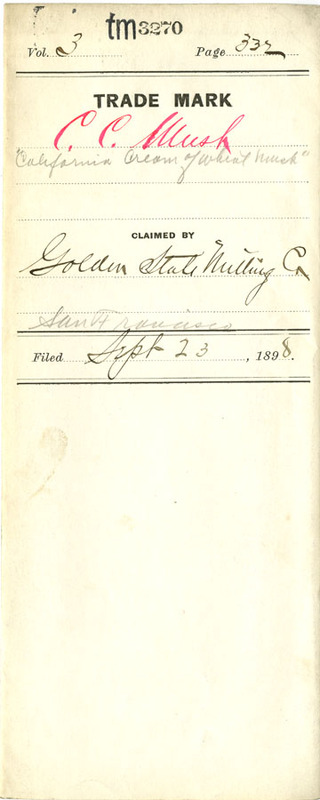 tm3270
Vol. 3 Page 332
TRADE MARK
C. C. Mush
"California Cream of Wheat Mush"
CLAIMED BY
Golden State Milling Co
San Francisco
Filed Sept 23, 1898.